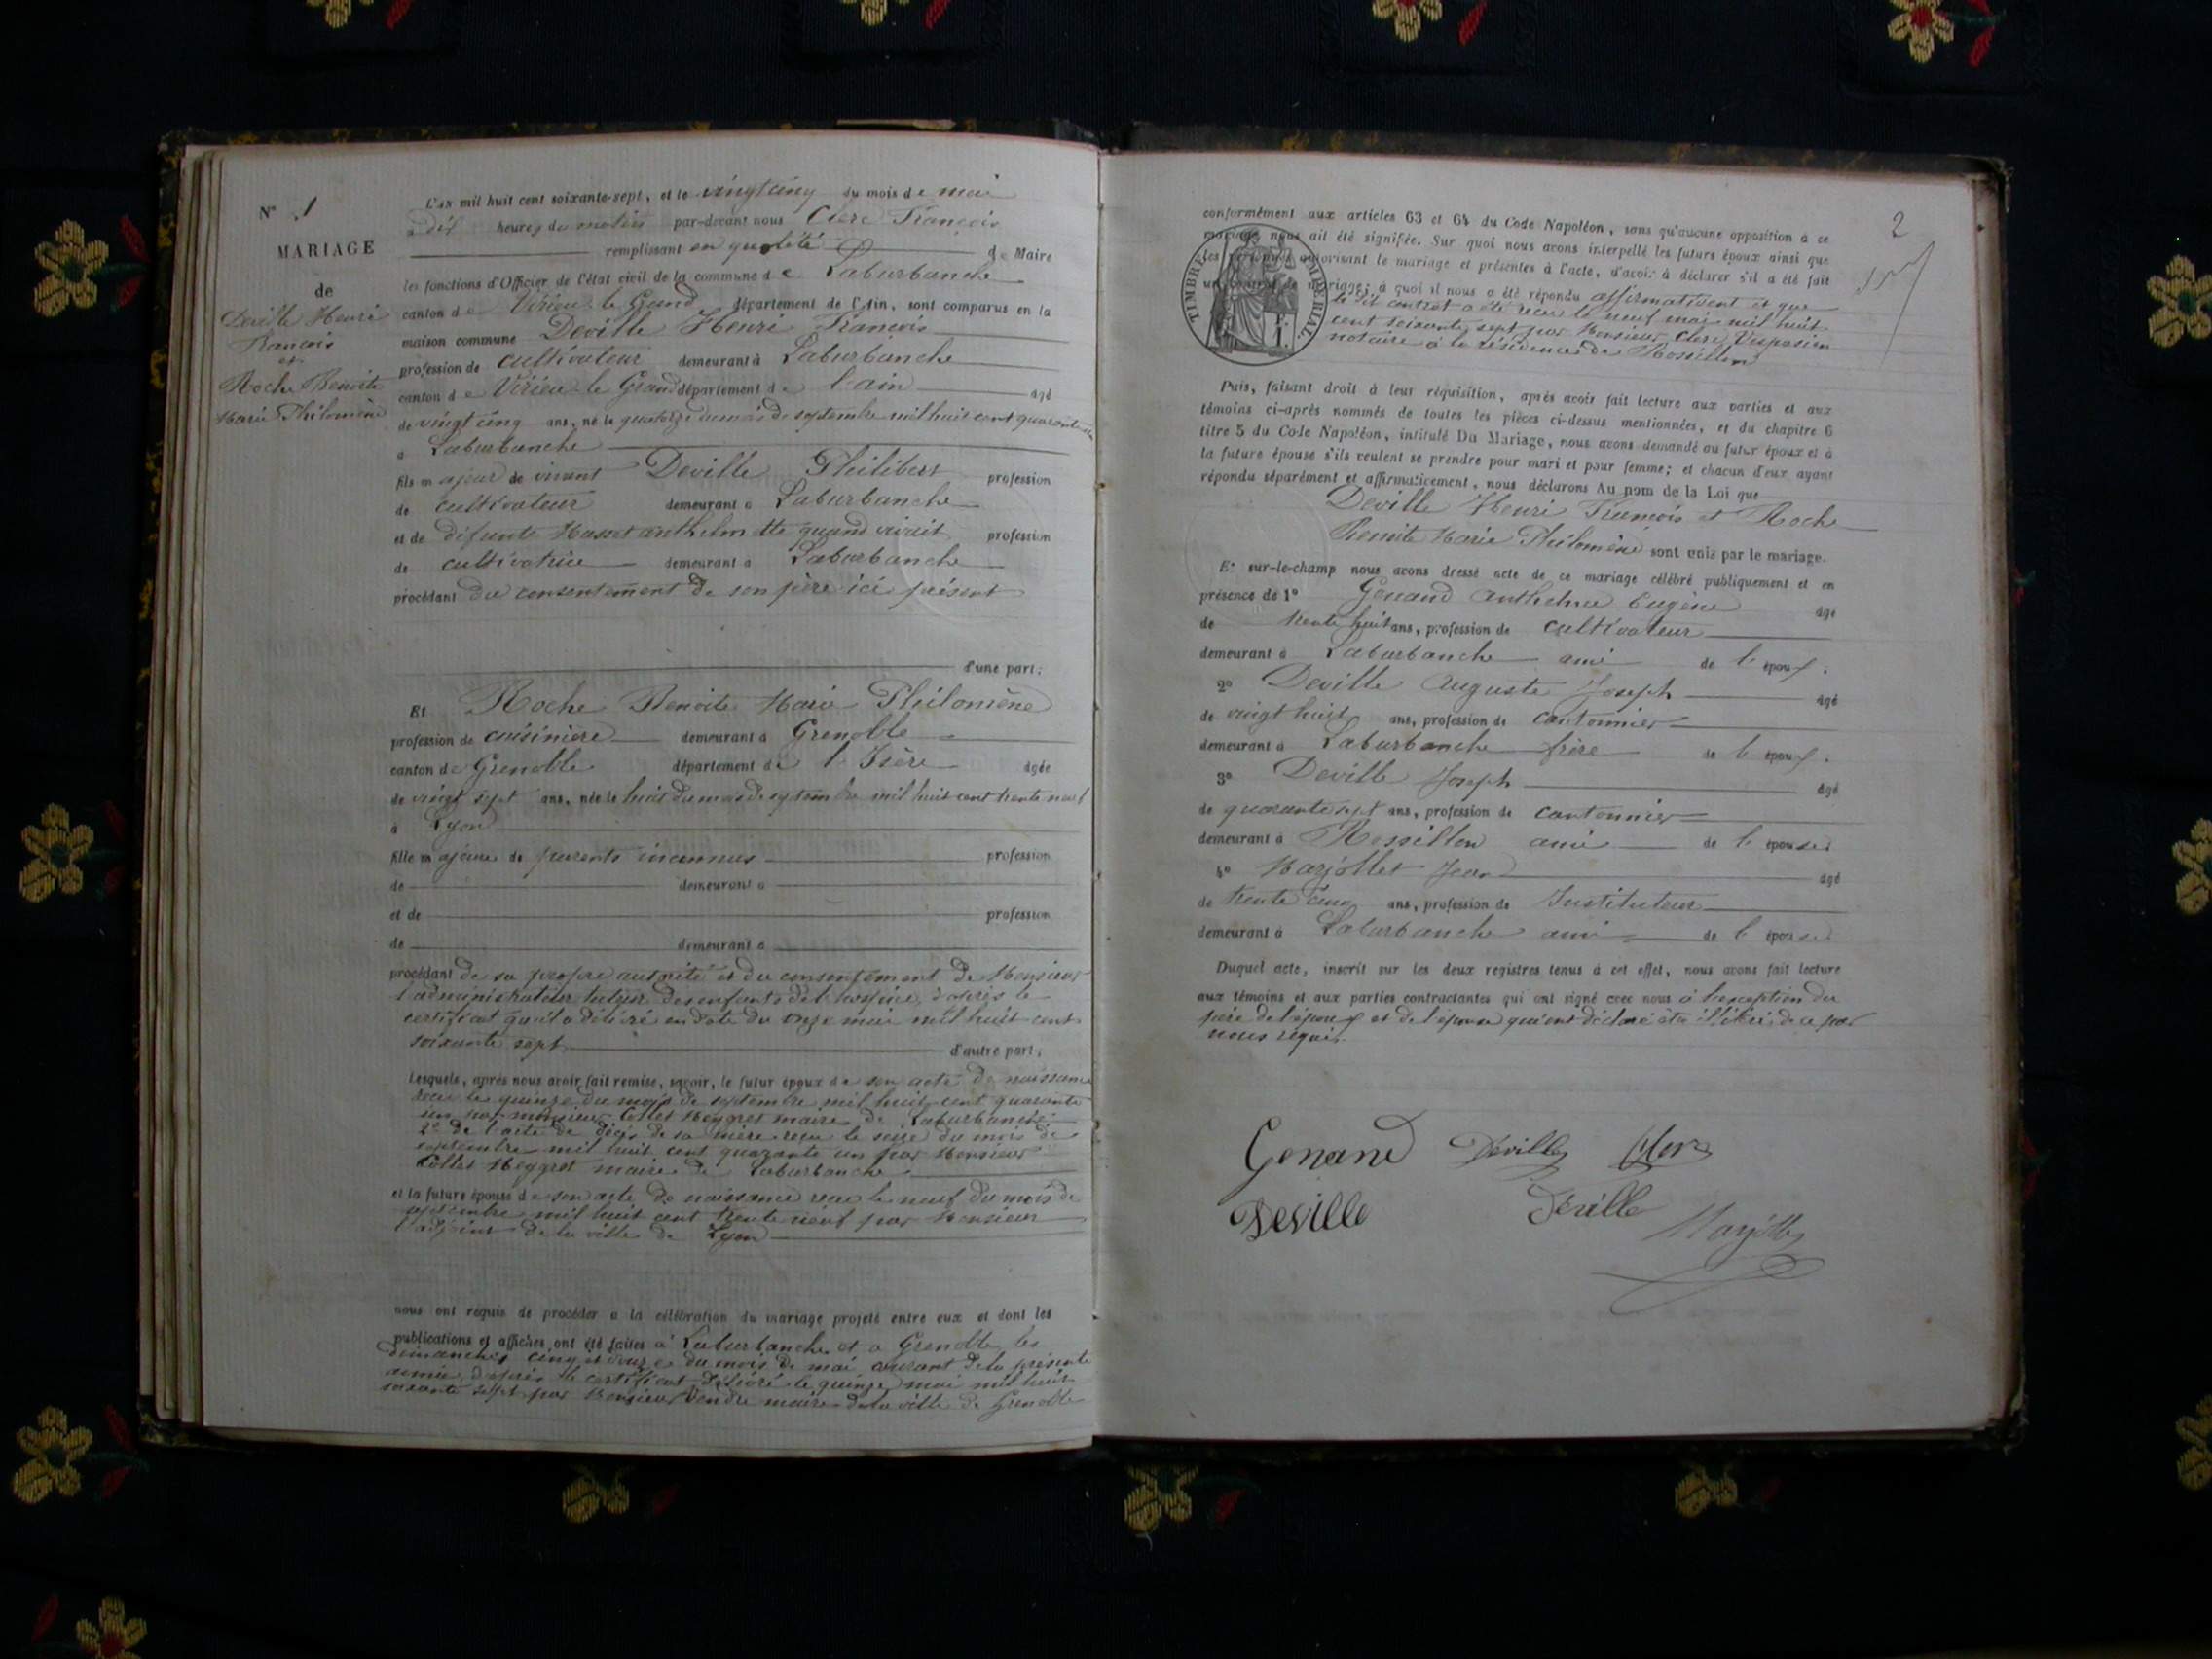 N° 1
MARIAGE
de
Deville Henri
François
et
Roche Benoite
Marie Philomène
L'an mil huit cent soixante-sept, et le vingt cinq du mois de mai
à dix heures du matin par-devant nous Clerc François
remplissant en qualité de Maire
les fonctions d'Officier de l'état civil de la commune de Laburbanche
canton de Virieu le Grand département de l'Ain, sont comparus en la
maison commune Deville Henri François
profession de cultivateur demeurant à Laburbanche
canton de Virieu le Grand département de l'ain agé
de vingt cinq ans, né le quatorze du mois de septembre mil huit cent quarante un
à Laburbanche
fils majeur de vivant Deville Philibert profession
de cultivateur demeurant à Laburbanche
et de défunte Masset anthelmette quand vivait profession
de cultivatrice demeurant à Laburbanche
procédant du consentement de son père ici présent
d'une part;
Et Roche Benoite Marie Philomène
profession de cuisinière demeurant à Grenoble
canton de Grenoble département de l'Isère agée
de vingt sept ans, née le huit du mois de septembre mil huit cent trente neuf
à Lyon
fille majeure de parents inconnus profession
de demeurant à
et de profession
de demeurant à
procédant de sa propre autorité et du consentement de Monsieur
l'administrateur tuteur des enfants de l'hospice, d'après le
certificat qu'il a délivré en date du onze mai mil huit cent
soixante sept d'autre part;
Lesquels, après nous avoir fait remise, savoir, le futur époux de son acte de naissance
recu le quinze du mois de septembre mil huit cent quarante
un par monsieur Collet Meygret maire de Laburbanche
2° de l'acte de décès de sa mère reçu le seize du mois de
septembre mil huit cent quarante un par Monsieur
Collet Meygret maire de Laburbanche
et la future épouse de son acte de naissance recu le neuf du mois de
septembre mil huit cent trente neuf par Monsieur
l'adjoint de la ville de Lyon
nous ont requis de procéder à la célébration du mariage projeté entre eux et dont les
publications et affiches ont été faites à Laburbanche et à Grenoble les
dimanches cinq et douze du mois de mai courant de la présente
année, d'après le certificat délivré le quinze mai mil huit
soixante sept par Monsieur Vendre maire de la ville de Grenoble
2
conformément aux articles 63 et 64 du Code Napoléon, sans qu'aucune opposition à ce
mariage nous ait été signifée. Sur quoi nous avons interpellé les futurs époux ainsi que
les personnes autorisant le mariage et présentes à l'acte, d'avoir à déclarer s'il a été fait
un contrat de mariage; à quoi il nous a été répondu affirmativement et que
le dit contrat a été recu le neuf mai mil huit
cent soixante sept par Monsieur Clerc Vespasien
notaire à la résidence de Rossillon
TIMBRE IMPERIAL
Puis, faisant droit à leur réquisition, après avoir fait lecture aux parties et aux
témoins ci-après nommés de toutes les pièces ci-dessus mentionnées, et du chapitre 6
titre 5 du Code Napoléon, intitulé Du Mariage, nous avons demandé au futur époux et à
la future épouse s'ils veulent se prendre pour mari et pour femme; et chacun d'eux ayant
répondu séparément et affirmativement, nous déclarons Au nom de la Loi que
Deville Henri François et Roche
Benoite Marie Philomène sont unis par le mariage.
Et sur-le-champ nous avons dressé acte de ce mariage célébré publiquement et en
présence de 1° Genand Anthelme Eugène agé
de trente huit ans, profession de cultivateur
demeurant à Laburbanche ami de l'époux.
2° Deville Auguste Joseph agé
de vingt huit ans, profession de cantonnier
demeurant à Laburbanche frère de l'époux.
3° Deville Joseph agé
de quarante sept ans, profession de cantonnier
demeurant à Rossillon ami de l'épouse.
4° Marjollet Jean agé
de trente cinq ans, profession de Instituteur
demeurant à Laburbanche ami de l'épouse
Duquel acte, inscrit sur les deux registres tenus à cet effet, nous avons fait lecture
aux témoins et aux parties contractantes qui ont signé avec nous à l'exception du
père de l'époux et de l'épouse qui ont déclaré être illitérés de ce par
nous requis.
Genand Deville Clerc
Deville Deville
Marjollet